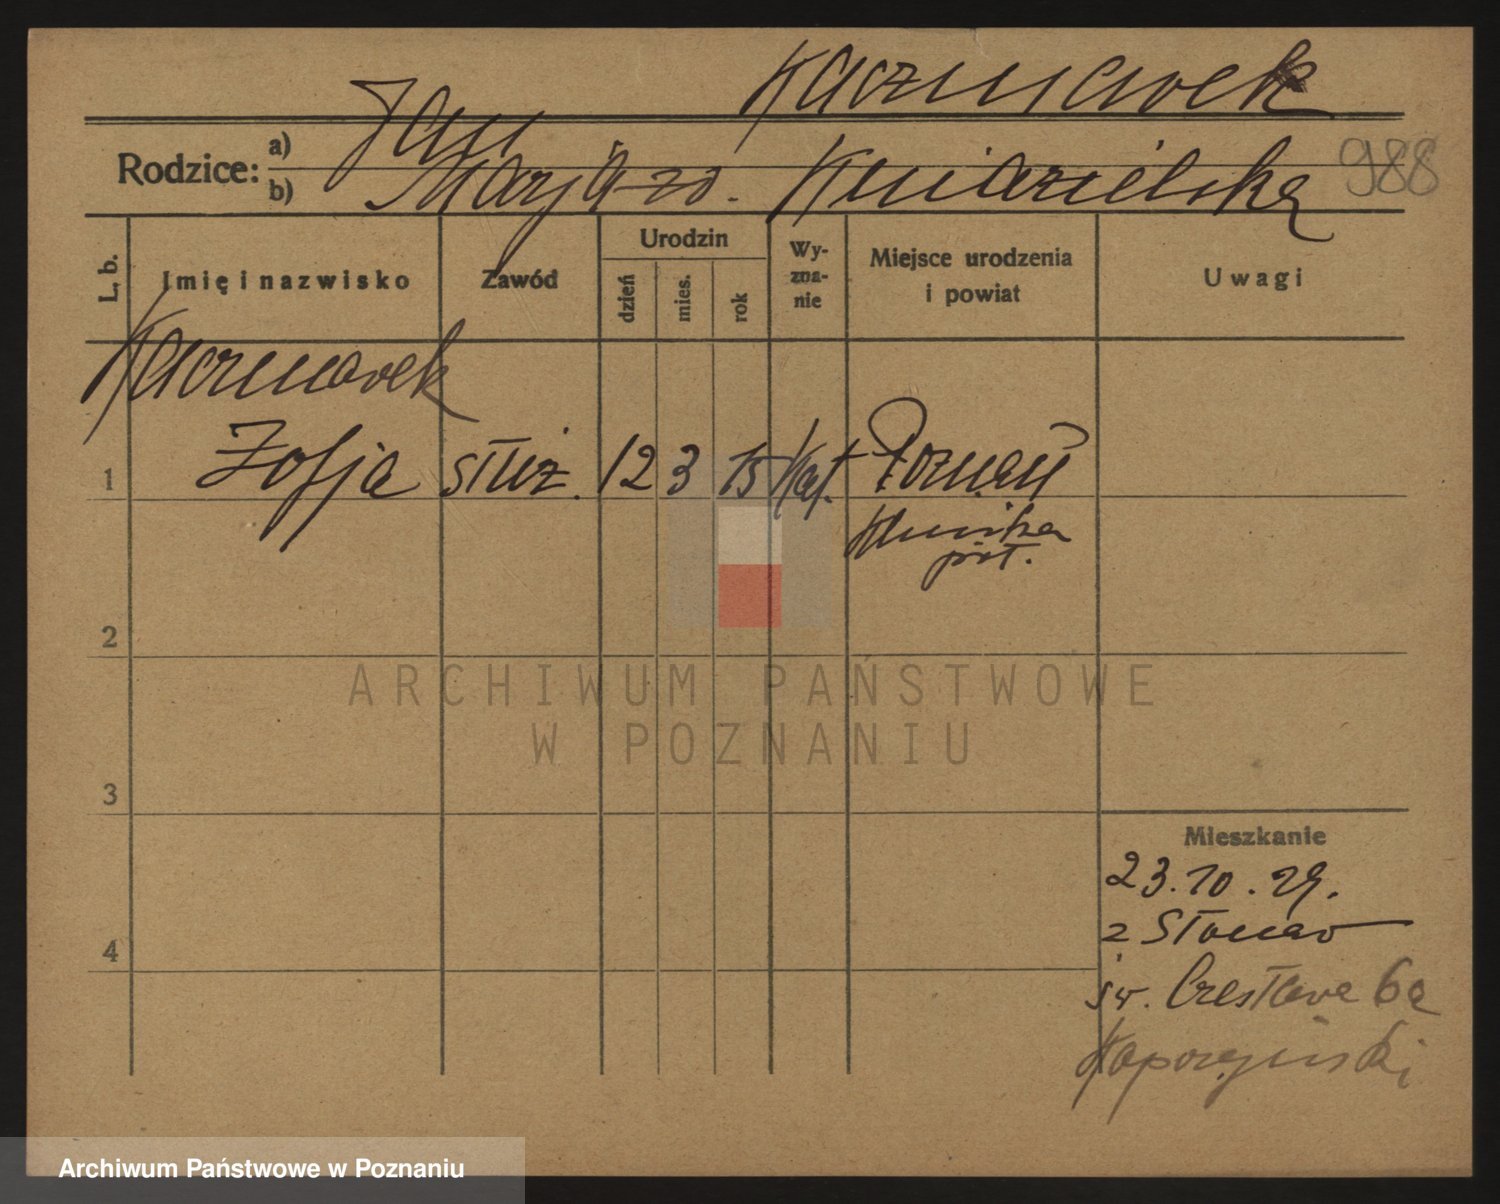 Kaczmarek
Rodzice: a) Jan
b) Marja zd. Kniazielska 988
L. b.
Imię i nazwisko
Zawód
Urodzin
dzień
mies.
rok
Wy-
zna-
nie
Miejsce urodzenia
i powiat
Uwagi
Kaczmarek
1 Zofja służ. 12 3 15 kat. Poznań
2
ARCHIWUM PAŃSTWOWE
W POZNANIU
3
Mieszkanie
23.10.29.
z
4
św. Czesława 6a
Kaporzyński
Archiwum Państwowe w Poznaniu